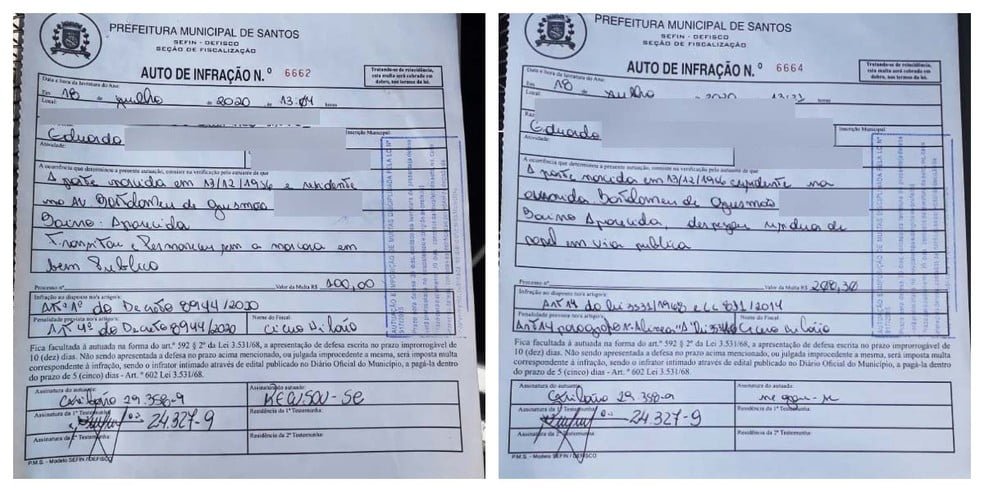 PREFEITURA MUNICIPAL DE SANTOS
SEFIN - DEFISCO
SEÇÃO DE FISCALIZAÇÃO
AUTO DE INFRAÇÃO N.º 6662
Tratando-se de reincidência,
esta multa será cobrada em
dobro, nos termos da lei.
Data e hora da lavratura do Auto:
Em 18 de julho de 2020 13:04 horas
Local:
Eduardo
Inscrição Municipal:
Atividade:
A ocorrência que determinou a presente autuação, consiste na verificação pelo autuante de que
A parte nascida em 13/12/1956 e residente
na Av Bartolomeu de Gusmão
Bairro Aparecida
Transitou e Permaneceu sem a mascara em
bem Publico
Processo nº Valor da Multa R$ 100,00
Infração ao disposto no/s artigo/s:
Artº 1º do Decreto 8944/2020
Penalidade prevista no/s artigo/s: Nome do Fiscal:
Artº 4º do Decreto 8944/2020 Cicero Hilário
Fica facultada à autuada na forma do art.º 592 § 2º da Lei 3.531/68, a apresentação de defesa escrita no prazo improrrogável de
10 (dez) dias. Não sendo apresentada a defesa no prazo acima mencionado, ou julgada improcedente a mesma, será imposta multa
correspondente à infração, sendo o infrator intimado através de edital publicado no Diário Oficial do Município, a pagá-la dentro
do prazo de 5 (cinco) dias - Art.º 602 Lei 3.531/68.
Assinatura do autuante: Assinatura do autuado:
29.358-9 RECUSOU-SE
Assinatura da 1ª Testemunha: Residência da 1ª Testemunha:
24.327-9
Assinatura da 2ª Testemunha: Residência da 2ª Testemunha:
P.M.S. - Modelo SEFIN / DEFISCO
PREFEITURA MUNICIPAL DE SANTOS
SEFIN - DEFISCO
SEÇÃO DE FISCALIZAÇÃO
AUTO DE INFRAÇÃO N.º 6664
Tratando-se de reincidência,
esta multa será cobrada em
dobro, nos termos da lei.
Data e hora da lavratura do Auto:
Em 18 julho 2020 horas
Local:
Eduardo
Inscrição Municipal:
Atividade:
A ocorrência que determinou a presente autuação, consiste na verificação pelo autuante de que
A parte nascida em 13/12/1956 residente na
avenida Bartolomeu de Gusmão
Bairro Aparecida, despejou residuo de
papel em via publica
Processo nº Valor da Multa R$ 208,30
Infração ao disposto no/s artigo/s:
Art 14 da lei 3531/1968 e LC 831/2014
Penalidade prevista no/s artigo/s: Nome do Fiscal:
Art 14 paragrafo Cicero Hilário
Fica facultada à autuada na forma do art.º 592 § 2º da Lei 3.531/68, a apresentação de defesa escrita no prazo improrrogável de
10 (dez) dias. Não sendo apresentada a defesa no prazo acima mencionado, ou julgada improcedente a mesma, será imposta multa
correspondente à infração, sendo o infrator intimado através de edital publicado no Diário Oficial do Município, a pagá-la dentro
do prazo de 5 (cinco) dias - Art.º 602 Lei 3.531/68.
Assinatura do autuante: Assinatura do autuado:
29.358-9 negou-se
Assinatura da 1ª Testemunha: Residência da 1ª Testemunha:
24.327-9
Assinatura da 2ª Testemunha: Residência da 2ª Testemunha:
P.M.S. - Modelo SEFIN / DEFISCO